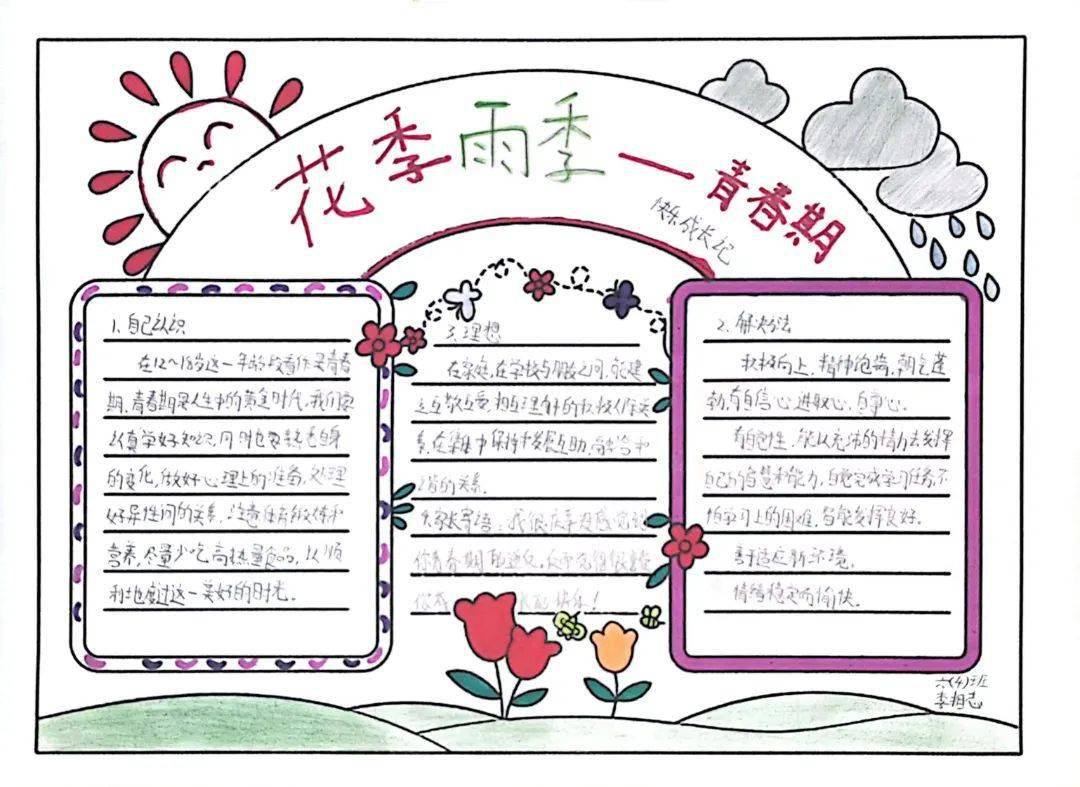 花季雨季—青春期
快乐成长记
1.自己认识
在12~18岁这一年龄段看作是青春
期,青春期是人生中的黄金时代,我们要
认真学好知识,同时也要熟悉自身
的变化,做好心理上的准备,处理
好异性间的关系,注意任
营养,尽量少吃高热量食品,以顺
利地度过这一美好的时光。
3.理想
在家庭,在学校与朋友之间,能建
立互敬互爱,相互理解的积极人际关
系,在集中保持和发展互助,
谐的关系。
4.家长寄语:我很庆幸
你青春期
快乐!
2.解决方法
积极向上,精神饱满,朝气蓬
勃,有自信心,进取心,自尊心。
有自觉性,能以充沛的精力去发挥
自己的智慧和能力,自觉完成学习任务,不
怕学习上的困难,智能发挥良好。
善于适应新环境,
情绪稳定而愉快。
六(4)班
李相志